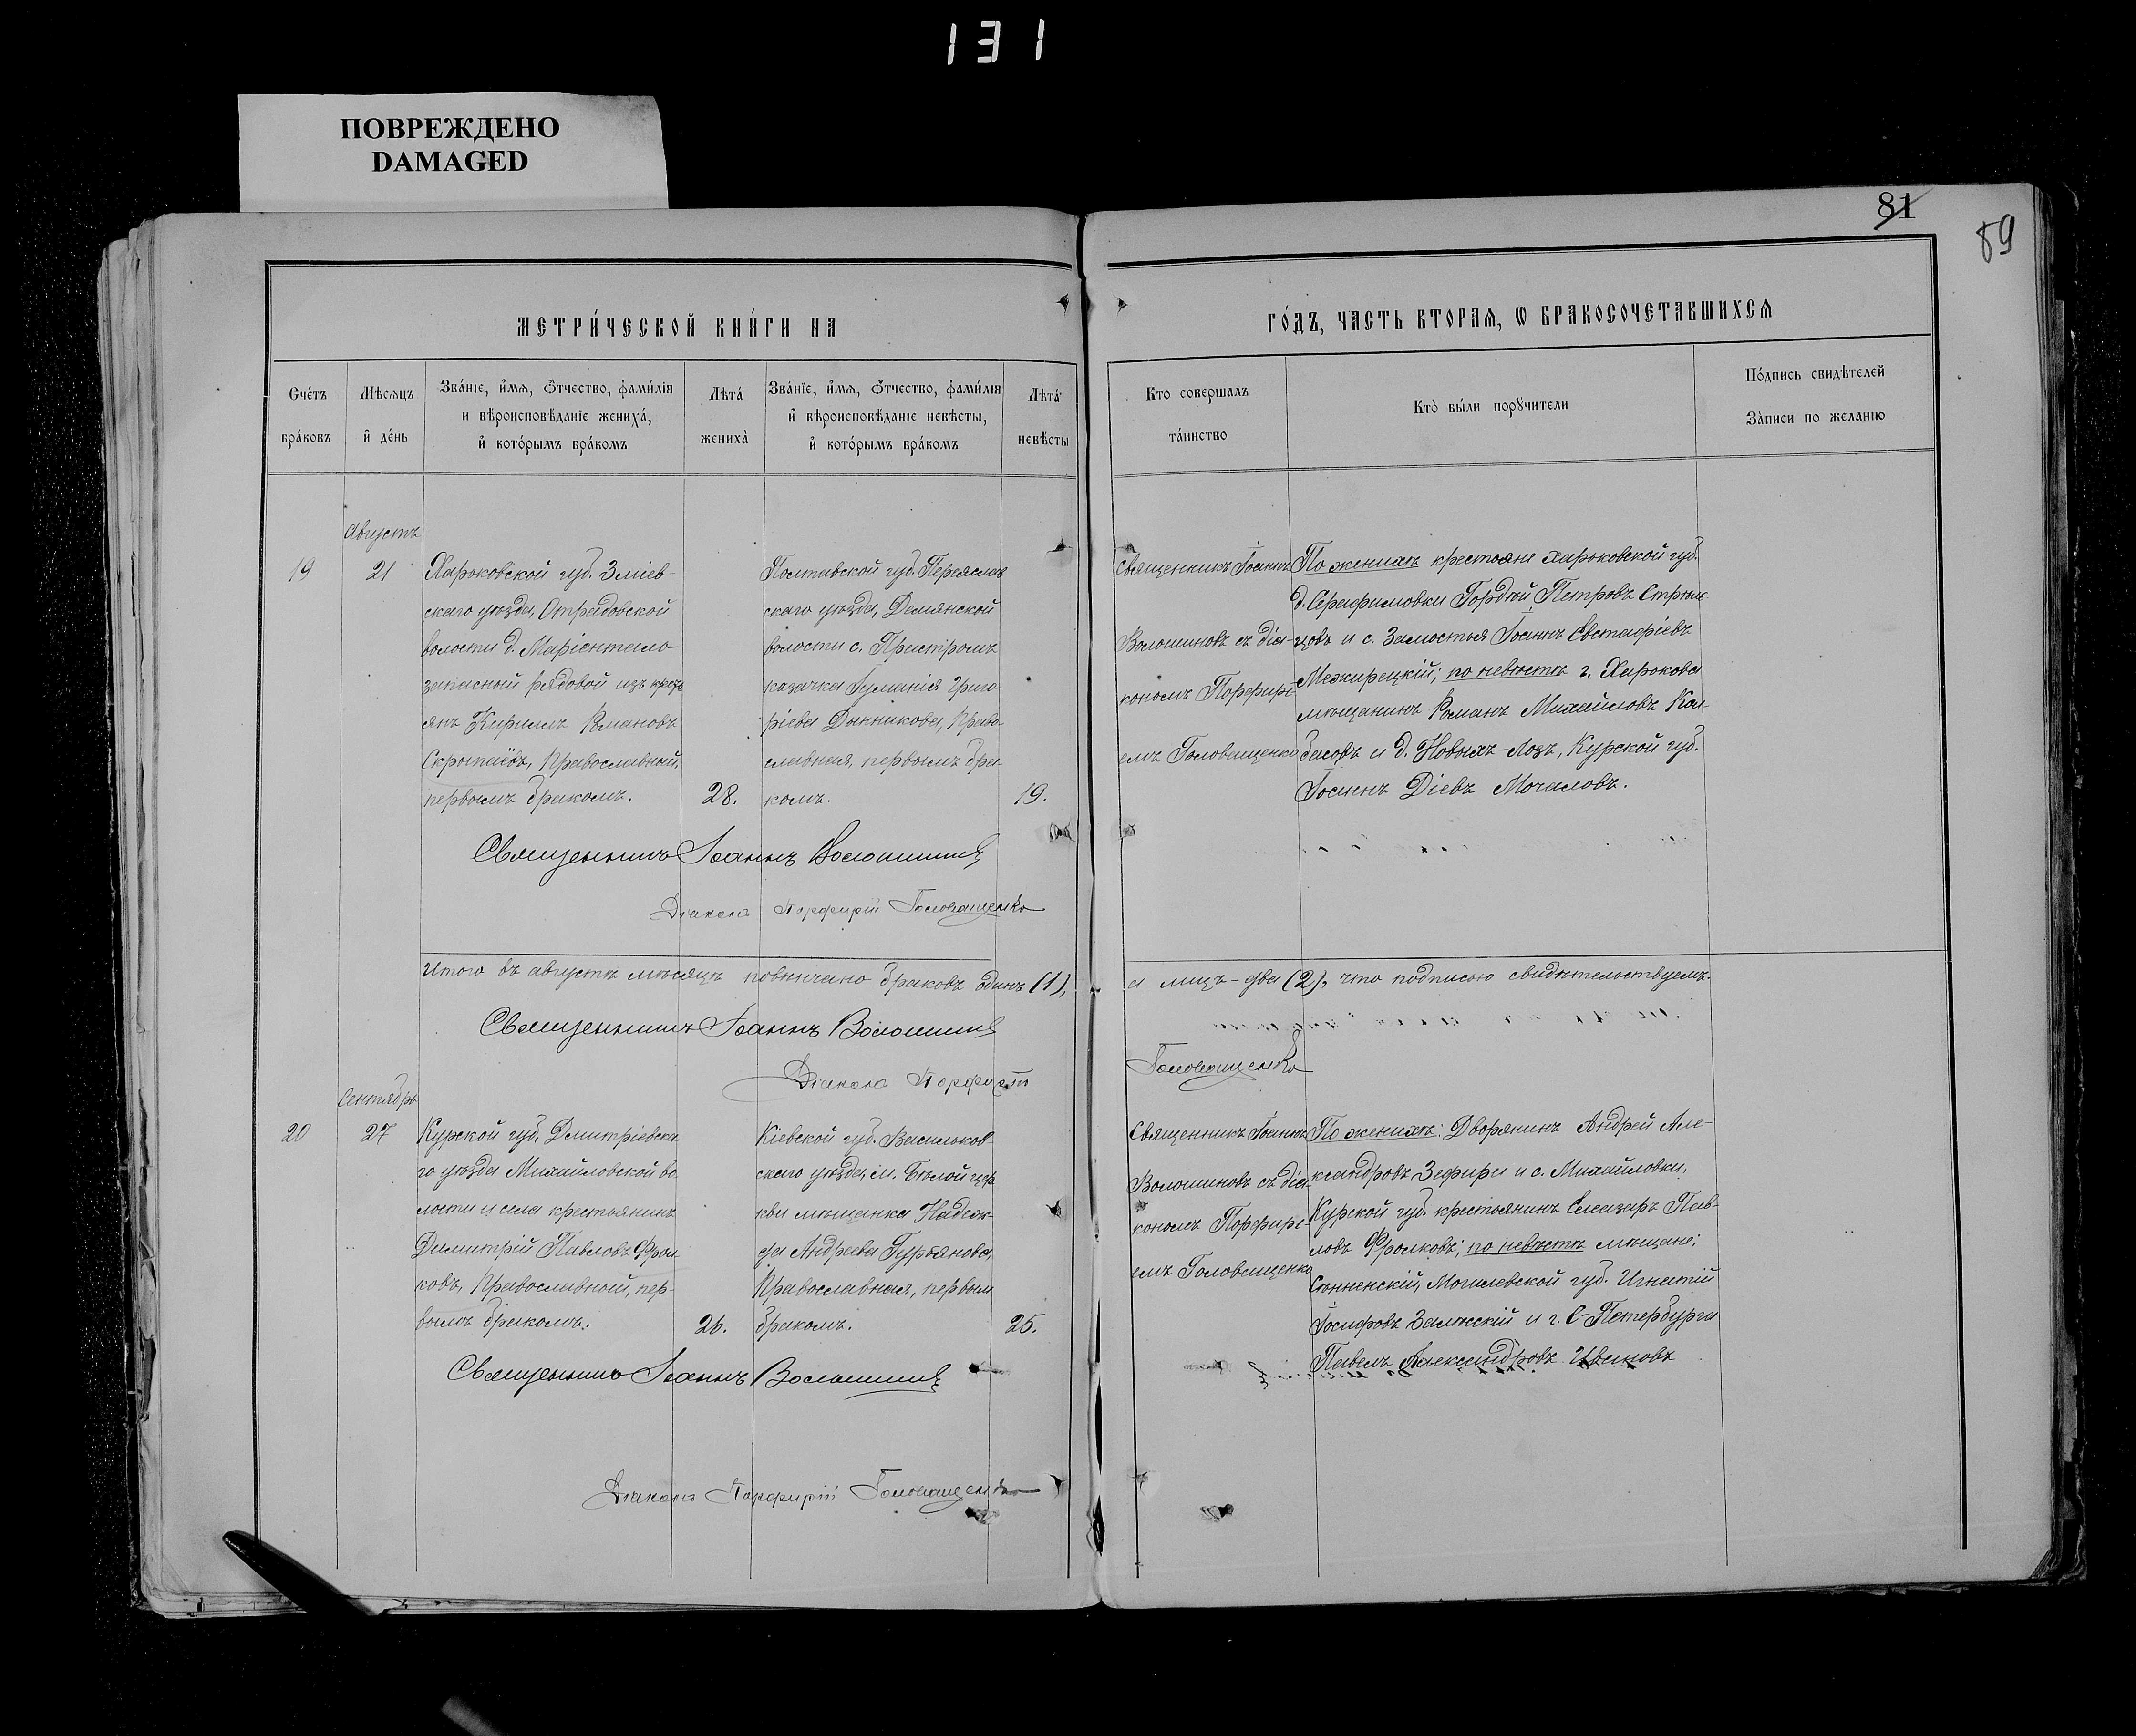 131
ПОВРЕЖДЕНО
DAMAGED
81
89
МЕТРИ́ЧЕСКОЙ КНИ́ГИ НА
ГО́ДЪ, ЧАСТЬ ВТОРАѦ, Ѡ БРАКОСОЧЕТАВШИХСѦ
Счетъ бра́ковъ
Мѣсѧцъ и҆ де́нь
Зва́нїе, и҆́мѧ, ѻ҆́тчество, фами́лїѧ
и вѣроисповѣ́данїе жениха̀,
и҆ кото́рымъ бра́комъ
Лѣта́ жениха̀
Зва́нїе, и҆́мѧ, ѻ҆́тчество, фами́лїѧ
и҆ вѣроисповѣ́данїе невѣ́сты,
и҆ кото́рымъ бра́комъ
Лѣта́ невѣ́сты
Кто совершалъ
та́инство
Кто̀ бы́ли порꙋчи́тели
По́дпись свидѣ́телей
За́писи по жела́нїю
Августъ
19
21
Харьковской губ. Зміев-
скаго уѣзда, Отрадовской
волости д. Маріенталь
запасный рядовой изъ кресть
янъ Кириллъ Романовъ
Православный,
первымъ бракомъ.
28.
Полтавской губ. Переяслав
скаго уѣзда, Демянской
волости с. Пристромъ
казачка Гуманія Григо-
ріева Донникова, Право-
славная, первымъ бра-
комъ.
19.
Священникъ Іоаннъ
Волошиновъ съ діа-
кономъ Порфирі-
емъ Головащенко
По женихѣ крестьяне харьковской губ.
д. Серафимовки Гордѣй Петровъ Стрѣль
цовъ и с. Замостья Іоаннъ Евстафіевъ
Межирецкій; по невѣстѣ г. Харькова
мѣщанинъ Романъ Михайловъ Кол-
басовъ и д. Новыхъ-Лозъ, Курской губ.
Іоаннъ Діевъ Мочаловъ.
Священникъ Іоаннъ Волошинов
Діаконъ Порфирій Головащенко
Итого въ августѣ мѣсяцѣ повѣнчано браковъ одинъ (1),
а лицъ - два (2), что подписью свидѣтельствуемъ.
Священникъ Іоаннъ Волошинов
Діаконъ Порфирій
Головащенко
Сентябрь
20
27
Курской губ. Дмитріевска-
го уѣзда Михайловской во
лости и села крестьянинъ
Димитрій Павловъ Фрол
ковъ, Православный, пер-
вымъ бракомъ.
26.
Кіевской губ. Васильков-
скаго уѣзда, м. Бѣлой цер
кви мѣщанка Надеж-
да Андреева Гурьянова,
Православная, первым
бракомъ.
25.
Священникъ Іоаннъ
Волошиновъ съ діа-
кономъ Порфирі-
емъ Головащенко
По женихѣ: Дворянинъ Андрей Але-
ксандровъ Зефири и с. Михайловки,
Курской губ. крестьянинъ Елеазаръ Пав-
ловъ Фролковъ; по невѣстѣ мѣщане:
Сѣнненскій, Могилевской губ. Игнатій
Іосифовъ Залѣсскій и г. С-Петербурга
Павелъ Александровъ Ивановъ
Священникъ Іоаннъ Волошинов
Діаконъ Порфирій Головащенко